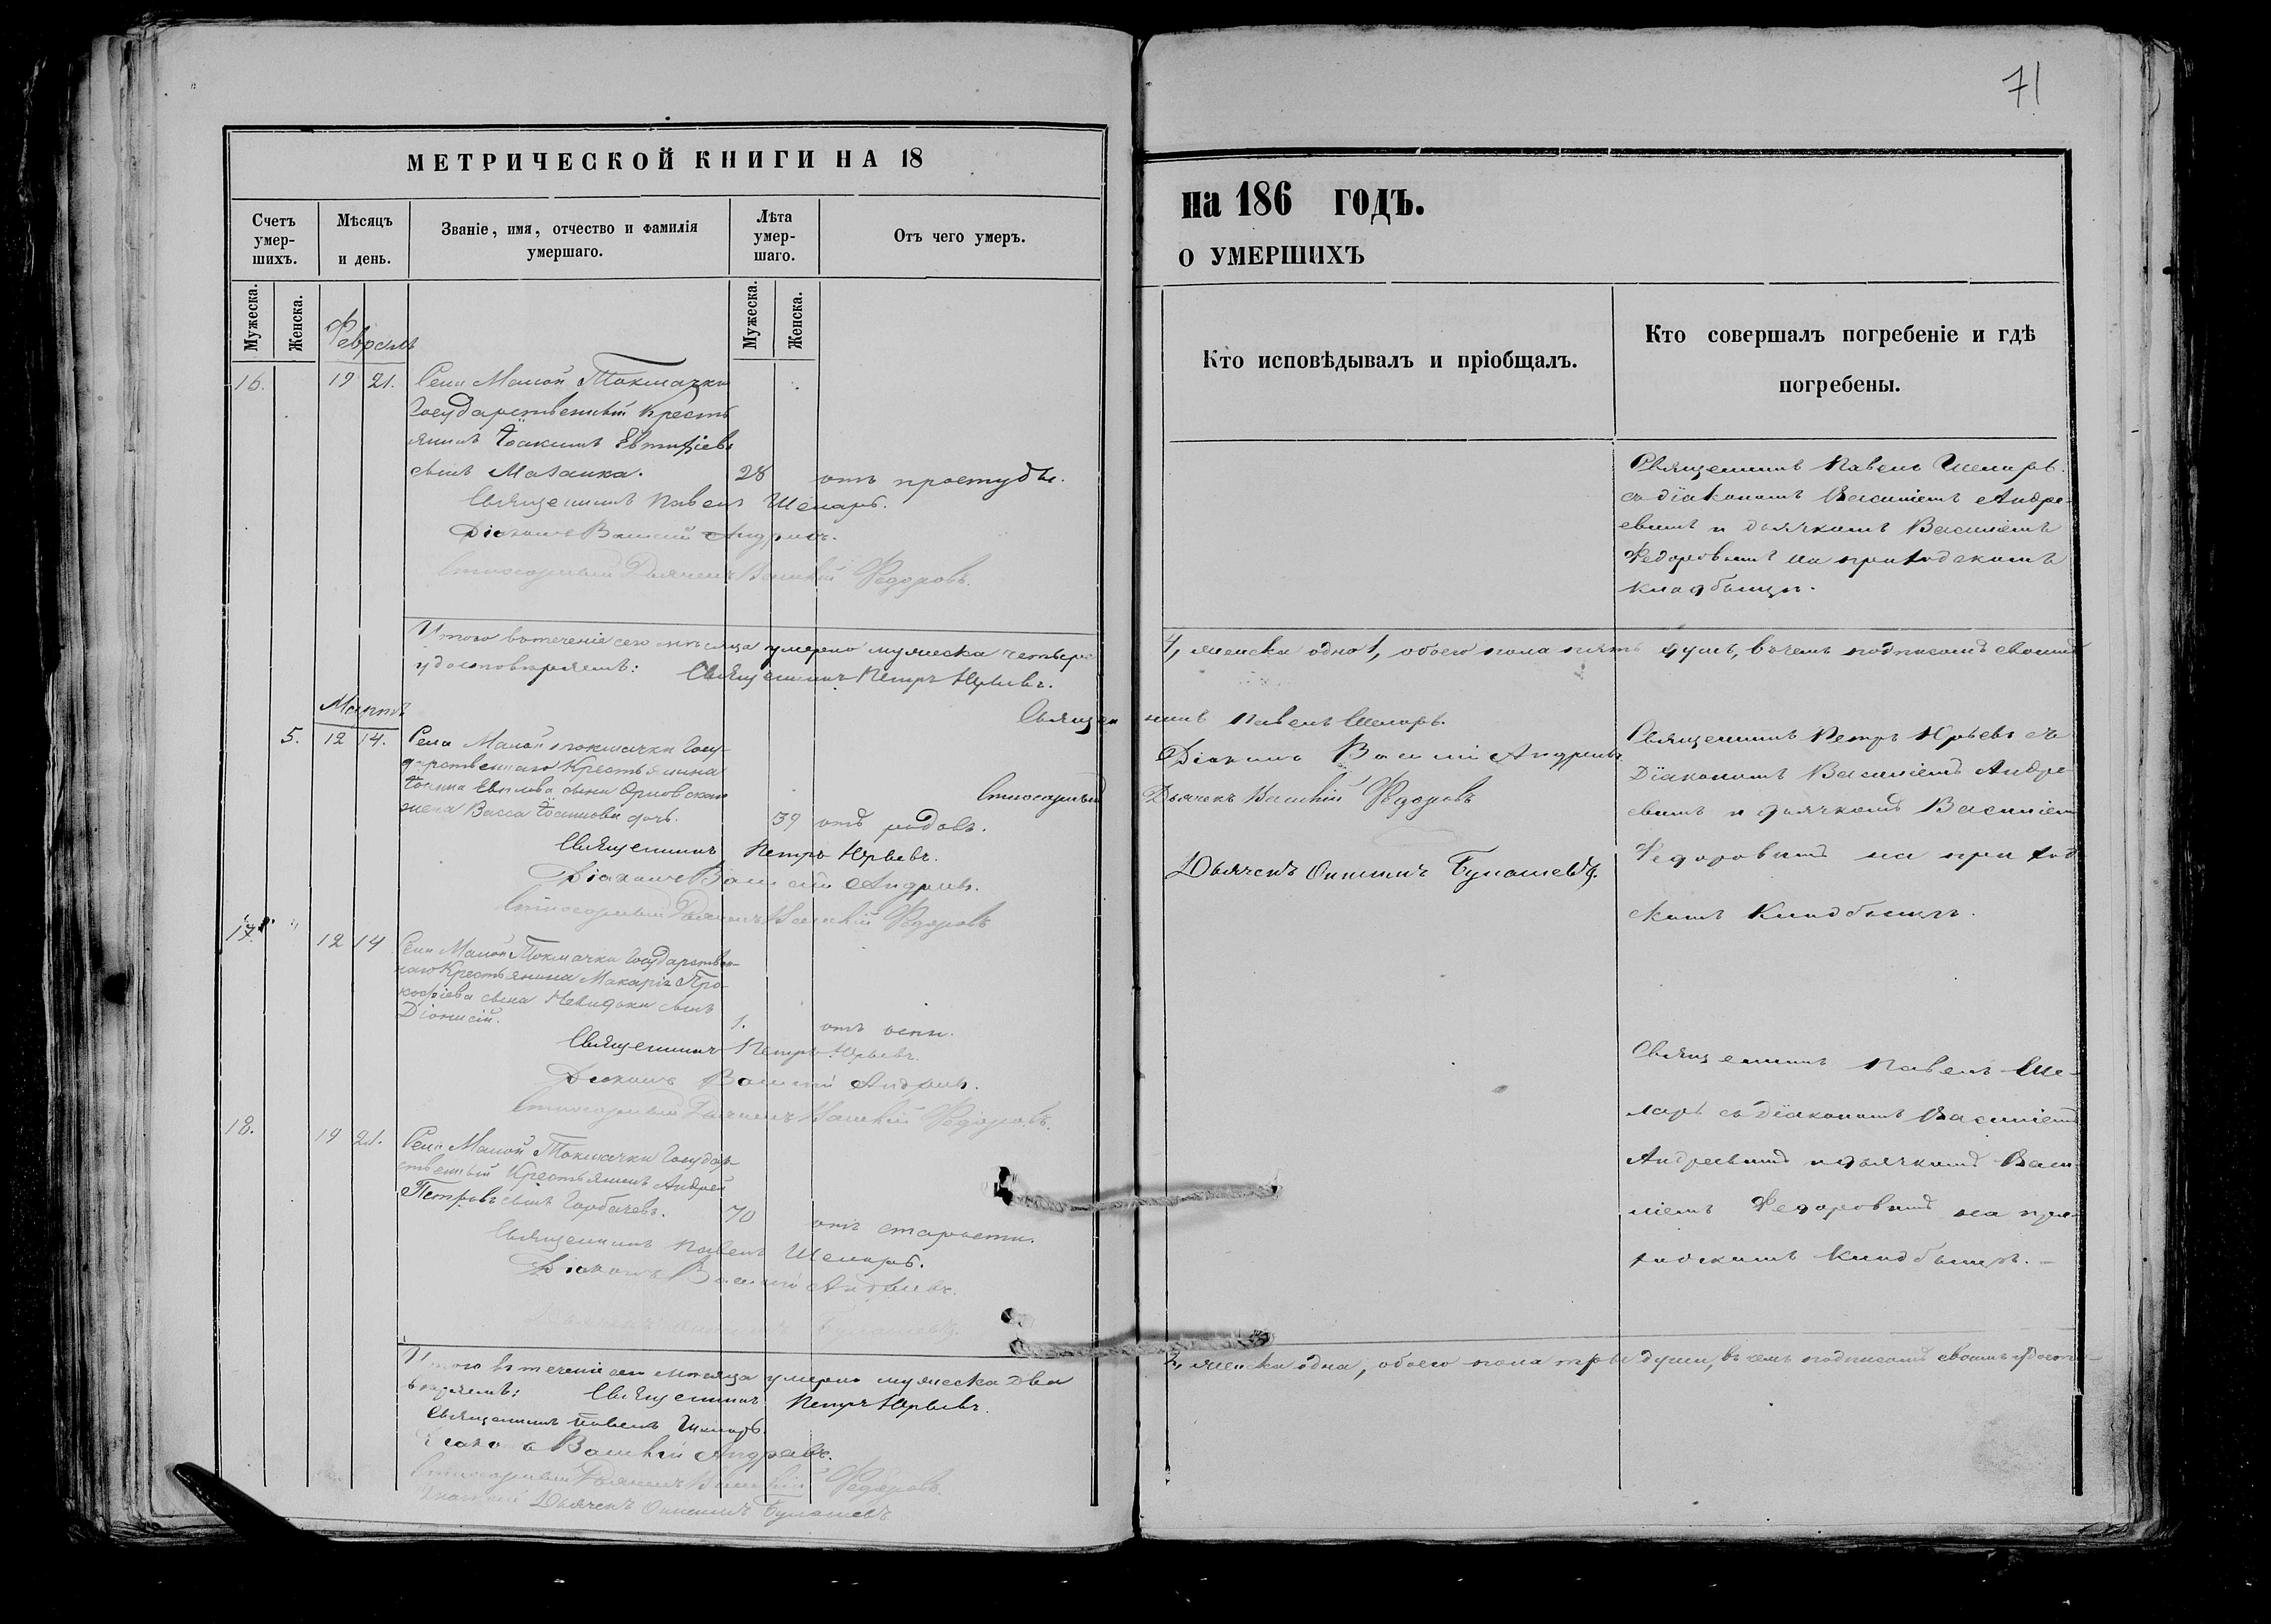 71
МЕТРИЧЕСКОЙ КНИГИ НА 18
на 186 ГОДЪ.
О УМЕРШИХЪ
Счетъ умер-шихъ.
Мѣсяцъ и день.
Званіе, имя, отчество и фамилія умершаго.
Лѣта умер-шаго.
Отъ чего умеръ.
Кто исповѣдывалъ и пріобщалъ.
Кто совершалъ погребеніе и гдѣ погребены.
Мужеска.
Женска.
Мужеска.
Женска.
Февраль
16. 19 21. Села Малой Токмачки
Государственный кресть
янинъ Іоакимъ Евтихіевъ
сынъ Мазанка. 28 отъ простуды.
Священникъ Павелъ
Діаконъ Василій Андреевъ.
Стихарный Дьячекъ Василій Федоровъ.
Священникъ Павелъ
съ діакономъ Василіемъ Андре-
евымъ и дьячкомъ Василіемъ
Федоровымъ на приходскомъ
кладбищѣ.
Итого въ теченіе сего мѣсяца умерло мужеска четыре 4, женска одна 1, обоего пола пять душъ, въ чемъ подписомъ своимъ
удостовѣряемъ: Священникъ Петръ Юрьевъ.
Священникъ Павелъ
Діаконъ Василій Андреевъ
Стихарный Дьячекъ Василій Федоровъ
Дьячекъ
Мартъ
5. 12 14. Села Малой Токмачки Госу-
дарственнаго Крестьянина
сына Орловскаго
жена Васса Іоаннова дочь. 39 отъ родовъ.
Священникъ Петръ Юрьевъ.
Діаконъ Василій Андреевъ.
Стихарный Дьячекъ Василій Федоровъ
Священникъ Петръ Юрьевъ съ
Діакономъ Василіемъ Андре-
евымъ и дьячкомъ Василіемъ
Федоровымъ на приход
скомъ кладбищѣ.
17. 12 14 Села Малой Токмачки Государствен-
наго Крестьянина Макарія Про-
кофіева сына сынъ
Діонисій. 1. отъ оспы.
Священникъ Петръ Юрьевъ.
Діаконъ Василій Андреевъ.
Стихарный Дьячекъ Василій Федоровъ.
18. 19 21. Села Малой Токмачки Государ-
ственный Крестьянинъ Андрей
Петровъ сынъ Горбачевъ. 70 отъ старости.
Священникъ Павелъ
Діаконъ Василій Андреевъ.
Священникъ Павелъ
съ діакономъ Василіемъ
Андреевымъ и дьячкомъ Васи-
ліемъ Федоровымъ на при-
ходскомъ кладбищѣ.
Итого въ теченіе сего мѣсяца умерло мужеска два 2, женска одна, обоего пола три души, въ чемъ подписомъ своимъ удосто-
вѣряемъ: Священникъ Петръ Юрьевъ.
Священникъ Павелъ
Діаконъ Василій Андреевъ.
Стихарный Дьячекъ Василій Федоровъ.
Дьячекъ